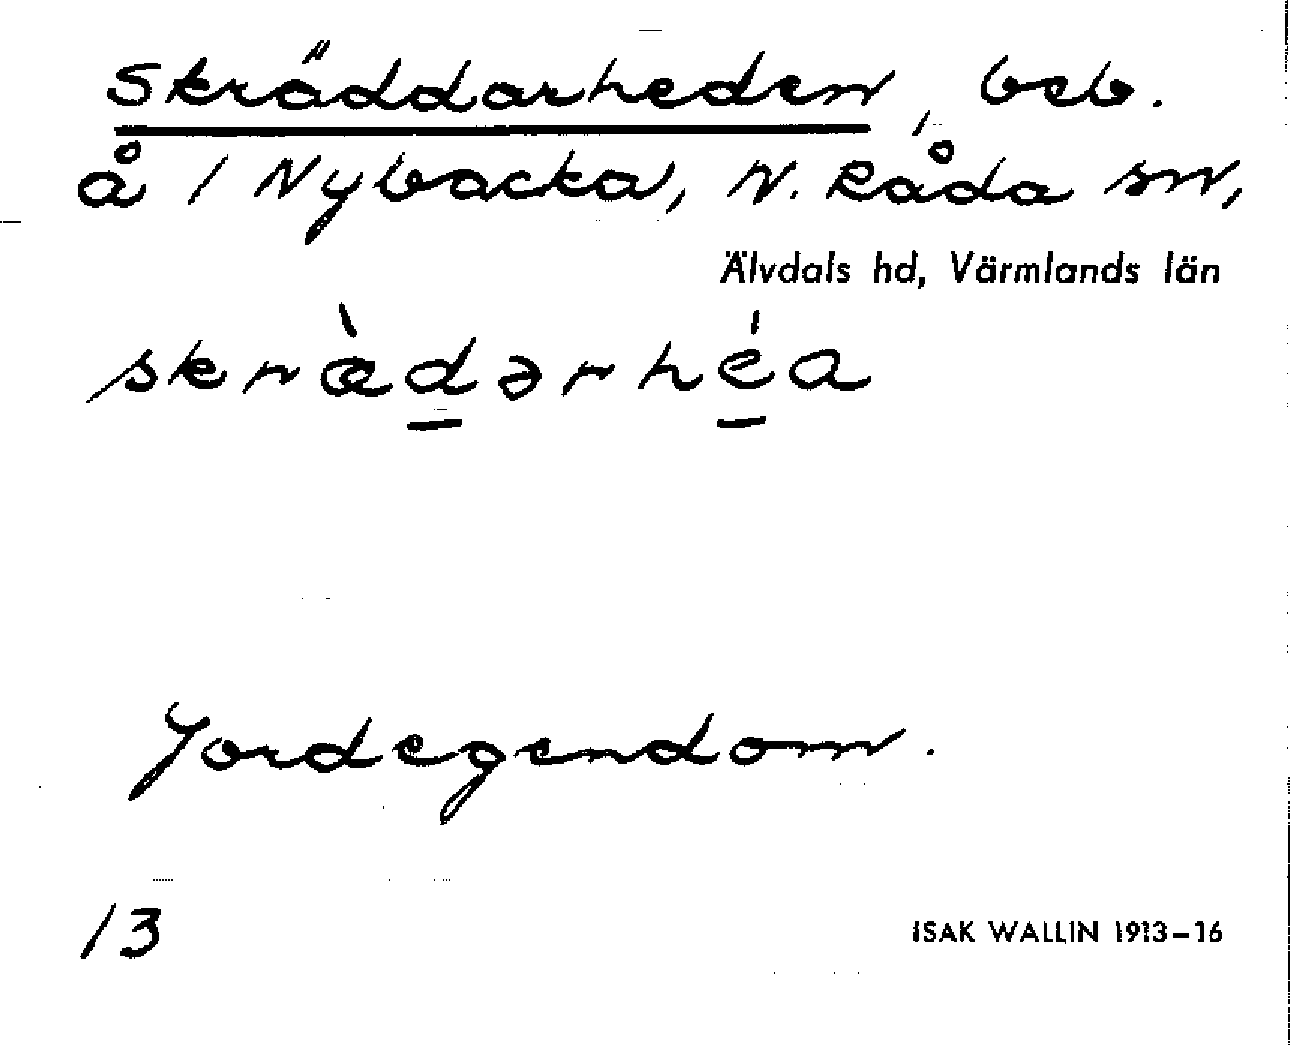 Skräddarheden, beb.
å 1 Nybacka, N. Råda sn,
Älvdals hd, Värmlands län
skræ̀dərhéa
Jordegendom.
13
ISAK WALLIN 1913–16